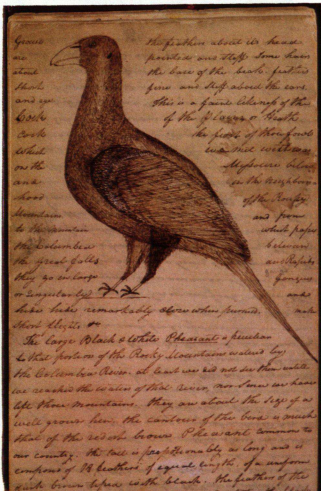 Grows the feathers about its head
are pointed and stiff some hairs
about the base of the beak. feathers
short fine and stiff about the ears
and eye This is a faint likeness of the
Cock of the plains or Heath
Cock the first of those fowls
which we met with was
on the Missouri below
and in the neighbour-
hood of the Rocky
Mountains and from
to the mountain which pass
the Columbia between
the great falls and Rapids
they go in large gangues
or singularly and
habits hide remarkably close when pursued. make
short flights &c
The large Black & White Pheasant is peculiar
to that portion of the Rocky Mountains watered by
the Columbia River. at least we did not see them untill
we reached the waters of that river, nor since we have
left those mountains. they are about the size of a
well grown hen. the contour of the bird is much
that of the redish brown Pheasant common to
our country. the tail is proportionably as long and is
composed of 18 feathers of equal length, of a uniform
dark brown tiped with black. the feathers of the